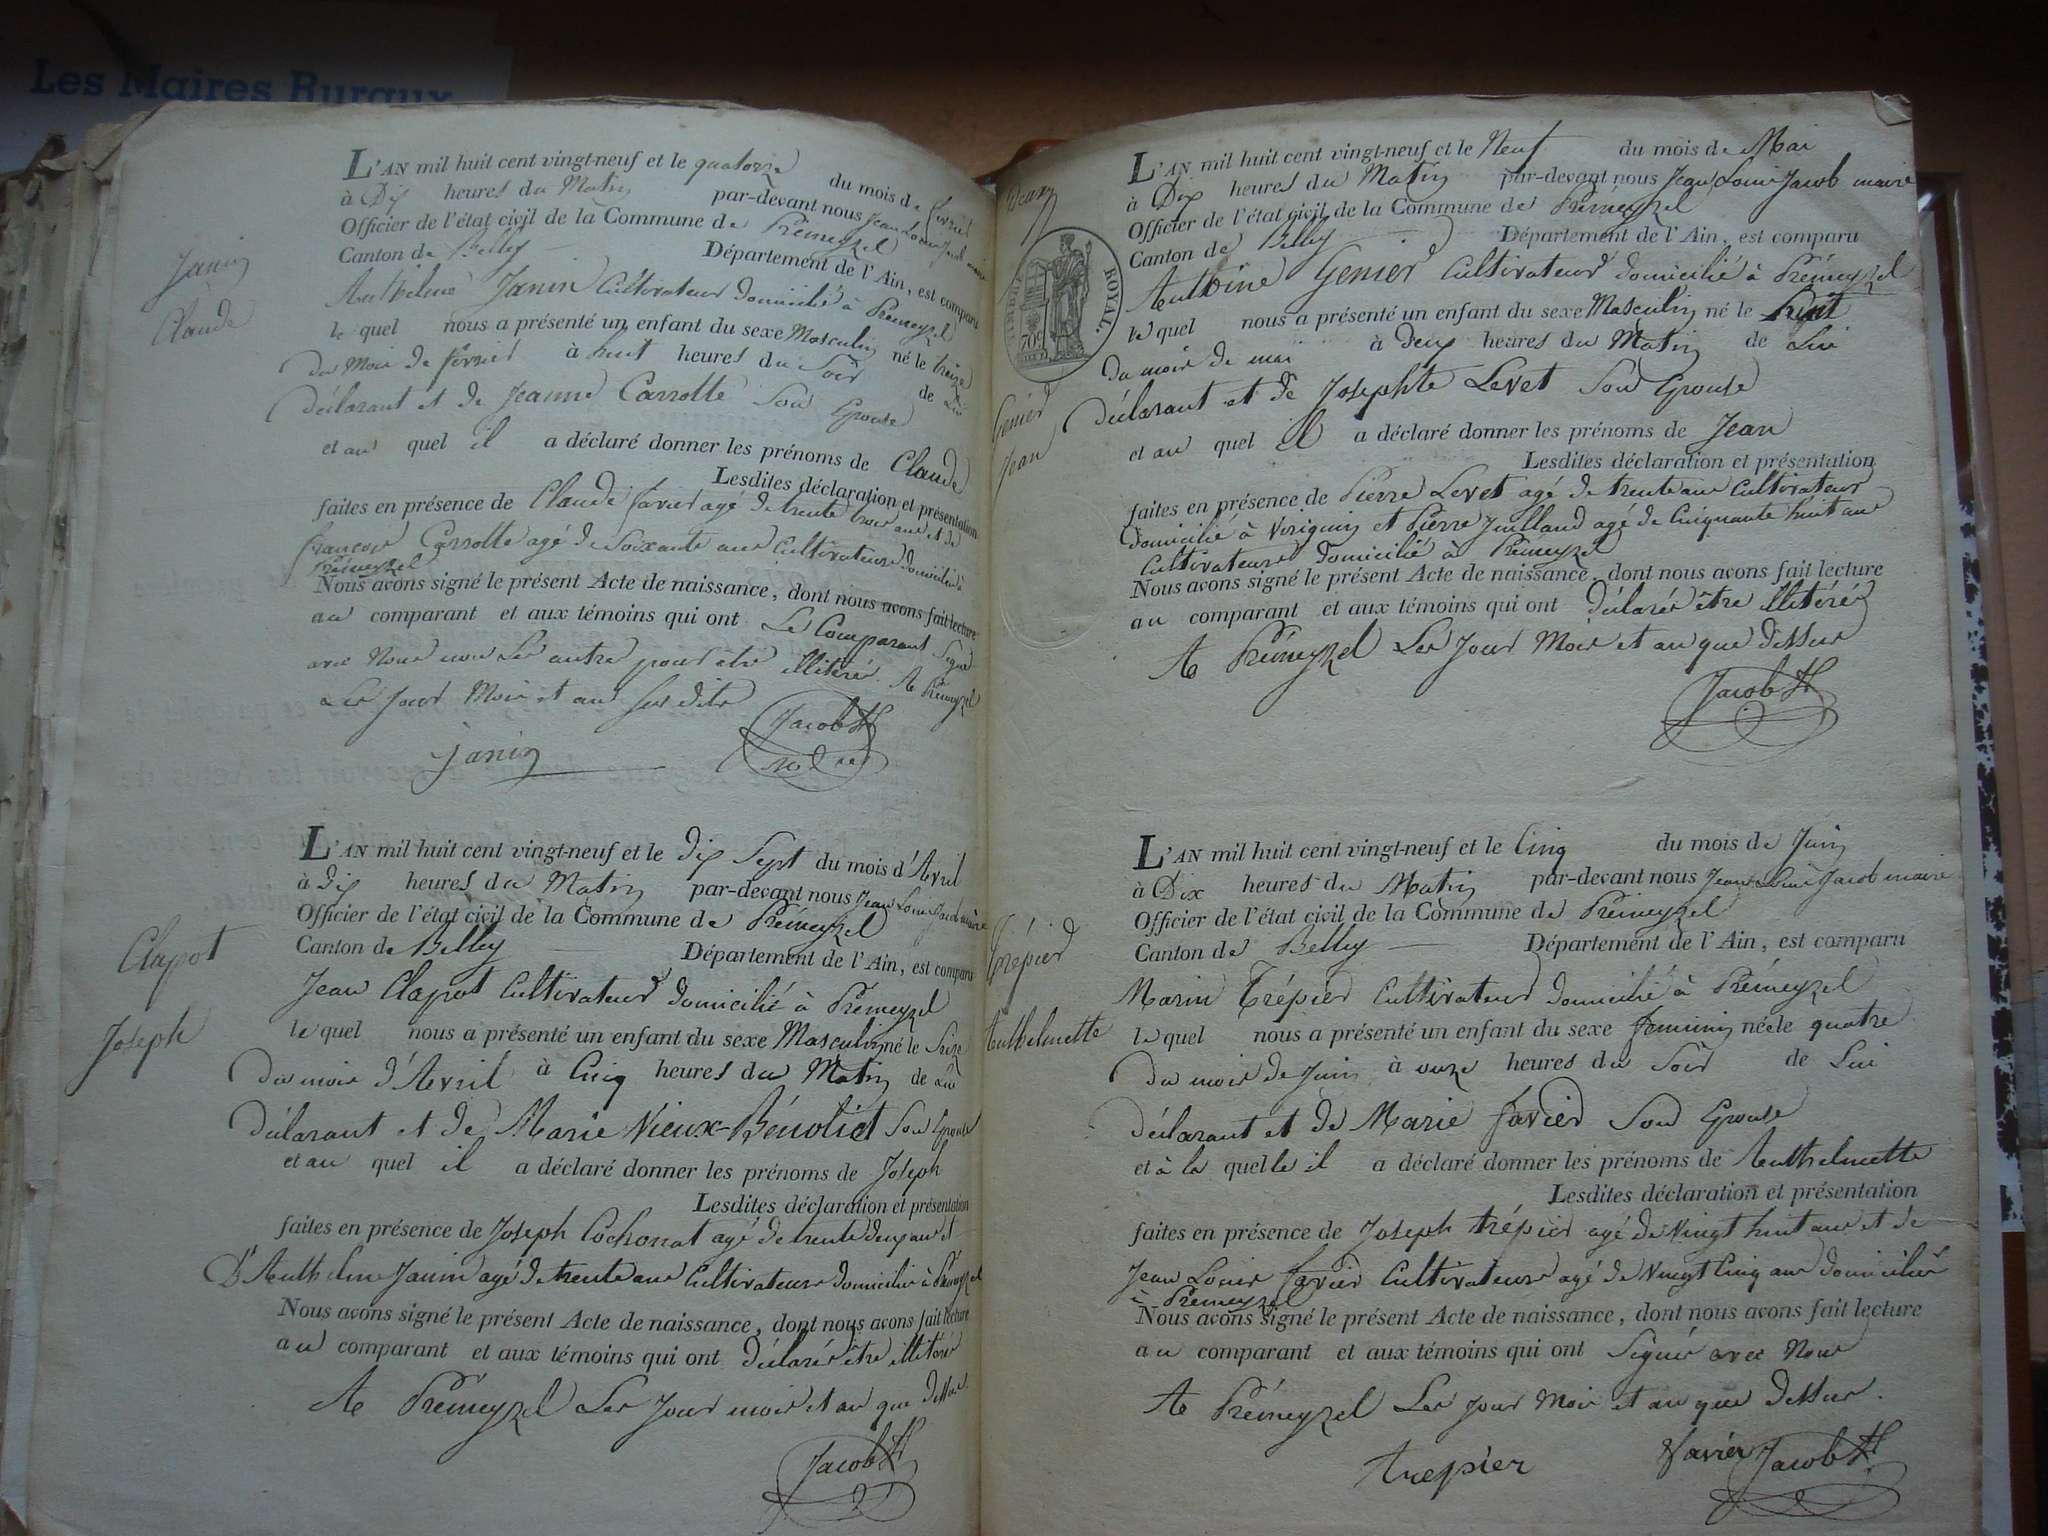 Les Maires Ruraux
L'AN mil huit cent vingt-neuf et le quatorze du mois de février
à Dix heures du Matin par-devant nous Jean Louis Jacob maire
Officier de l'état civil de la Commune de Prémeyzel
Canton de Belley Département de l'Ain, est comparu
Anthelme Janin Cultivateur domicilié à Prémeyzel
le quel nous a présenté un enfant du sexe Masculin né le treize
du Mois de février à huit heures du Soir de Lui
déclarant et de Jeanne Carrotte Son Epouse
et au quel il a déclaré donner les prénoms de Claude
Lesdites déclaration et présentation
faites en présence de Claude favier agé de trente trois ans et de
françois Carrotte agé de Soixante ans Cultivateurs domiciliés à
Prémeyzel
Nous avons signé le présent Acte de naissance, dont nous avons fait lecture
au comparant et aux témoins qui ont Le Comparant Signé
avec Nous non Les autres pour être illitérés. A Prémeyzel
Les Jour Mois et an sus dits
Janin Jacob
Janin
Claude
L'AN mil huit cent vingt-neuf et le dix Sept du mois d'Avril
à dix heures du Matin par-devant nous Jean Louis Jacob maire
Officier de l'état civil de la Commune de Prémeyzel
Canton de Belley Département de l'Ain, est comparu
Jean Clapot Cultivateur domicilié à Prémeyzel
le quel nous a présenté un enfant du sexe Masculin né le Seize
du mois d'Avril à Cinq heures du Matin de Lui
déclarant et de Marie Vieux-Bénotiet Son Epouse
et au quel il a déclaré donner les prénoms de Joseph
Lesdites déclaration et présentation
faites en présence de Joseph Cochonat agé de trente deux ans et
D'Anthelme Janin agé de trente ans Cultivateurs domiciliés à Prémeyzel
Nous avons signé le présent Acte de naissance, dont nous avons fait lecture
au comparant et aux témoins qui ont déclarés être illitérés
A Prémeyzel Les Jour mois et an que dessus.
Jacob
Clapot
Joseph
L'AN mil huit cent vingt-neuf et le Neuf du mois de Mai
à Dix heures du Matin par-devant nous Jean Louis Jacob maire
Officier de l'état civil de la Commune de Prémeyzel
Canton de Belley Département de l'Ain, est comparu
Antoine Genier Cultivateur domicilié à Prémeyzel
le quel nous a présenté un enfant du sexe Masculin né le
du mois de mai à deux heures du Matin de Lui
déclarant et de Josephte Levet Son Epouse
et au quel il a déclaré donner les prénoms de Jean
Lesdites déclaration et présentation
faites en présence de Pierre Levet agé de trente ans Cultivateur
domicilié à et Pierre Juilland agé de Cinquante huit ans
Cultivateur domicilié à Prémeyzel
Nous avons signé le présent Acte de naissance, dont nous avons fait lecture
au comparant et aux témoins qui ont déclarés être illitérés
A Prémeyzel Les Jour Mois et an que dessus
Jacob
TIMBRE ROYAL.
70c
Genier
Jean
L'AN mil huit cent vingt-neuf et le Cinq du mois de Juin
à Dix heures du Matin par-devant nous Jean Louis Jacob maire
Officier de l'état civil de la Commune de Prémeyzel
Canton de Belley Département de l'Ain, est comparu
Marin Trépier Cultivateur domicilié à Prémeyzel
le quel nous a présenté un enfant du sexe feminin née le quatre
du mois de Juin à onze heures du Soir de Lui
déclarant et de Marie favier Son Epouse
et à la quelle il a déclaré donner les prénoms de Anthelmette
Lesdites déclaration et présentation
faites en présence de Joseph trépier agé de Vingt huit ans et de
Jean Louis favier Cultivateurs agé de Vingt Cinq ans domiciliés
à Prémeyzel
Nous avons signé le présent Acte de naissance, dont nous avons fait lecture
au comparant et aux témoins qui ont Signés avec Nous
A Prémeyzel Les Jour Mois et an que dessus.
trepier favier Jacob
Trépier
Anthelmette